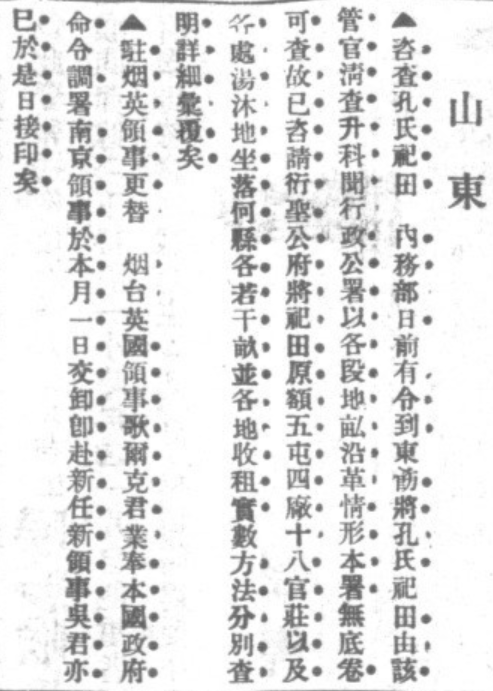 山東
▲咨查孔氏祀田　內務部日前有令到東飭將孔氏祀田由該
管官淸查升科聞行政公署以各段地畝沿革情形本署無底卷
可查故已咨請衍聖公府將祀田原額五屯四廠十八官莊以及
各處湯沐地坐落何縣各若干畝並各地收租實數方法分別查
明詳細彙覆矣
▲駐烟英領事更替　烟台英國領事歌爾克君業奉本國政府
命令調署南京領事於本月一日交卸卽赴新任新領事吳君亦
已於是日接印矣